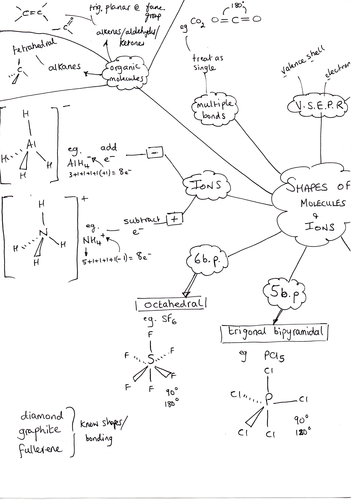 C=C
trig. planar @ func. group
C=
alkenes/aldehydes/
ketones
tetrahedral
C
alkanes
organic
molecules
eg CO2
180°
O=C=O
treat as
single
multiple
bonds
valence shell
electron
V.S.E.P.R
H
Al
H
H
H
−
eg.
AlH4−
add
e−
−
3+1+1+1+1(+1) = 8e−
IONS
SHAPES OF
MOLECULES
&
IONS
H
N
H
H
H
+
eg.
NH4+
subtract
e−
+
5+1+1+1+1(−1) = 8e−
6b.p.
5b.p.
octahedral
eg. SF6
F
F
F
S
F
F
F
90°
180°
trigonal bipyramidal
eg PCl5
Cl
Cl
P
Cl
Cl
Cl
90°
diamond
graphite
fullerene
know shapes/
bonding